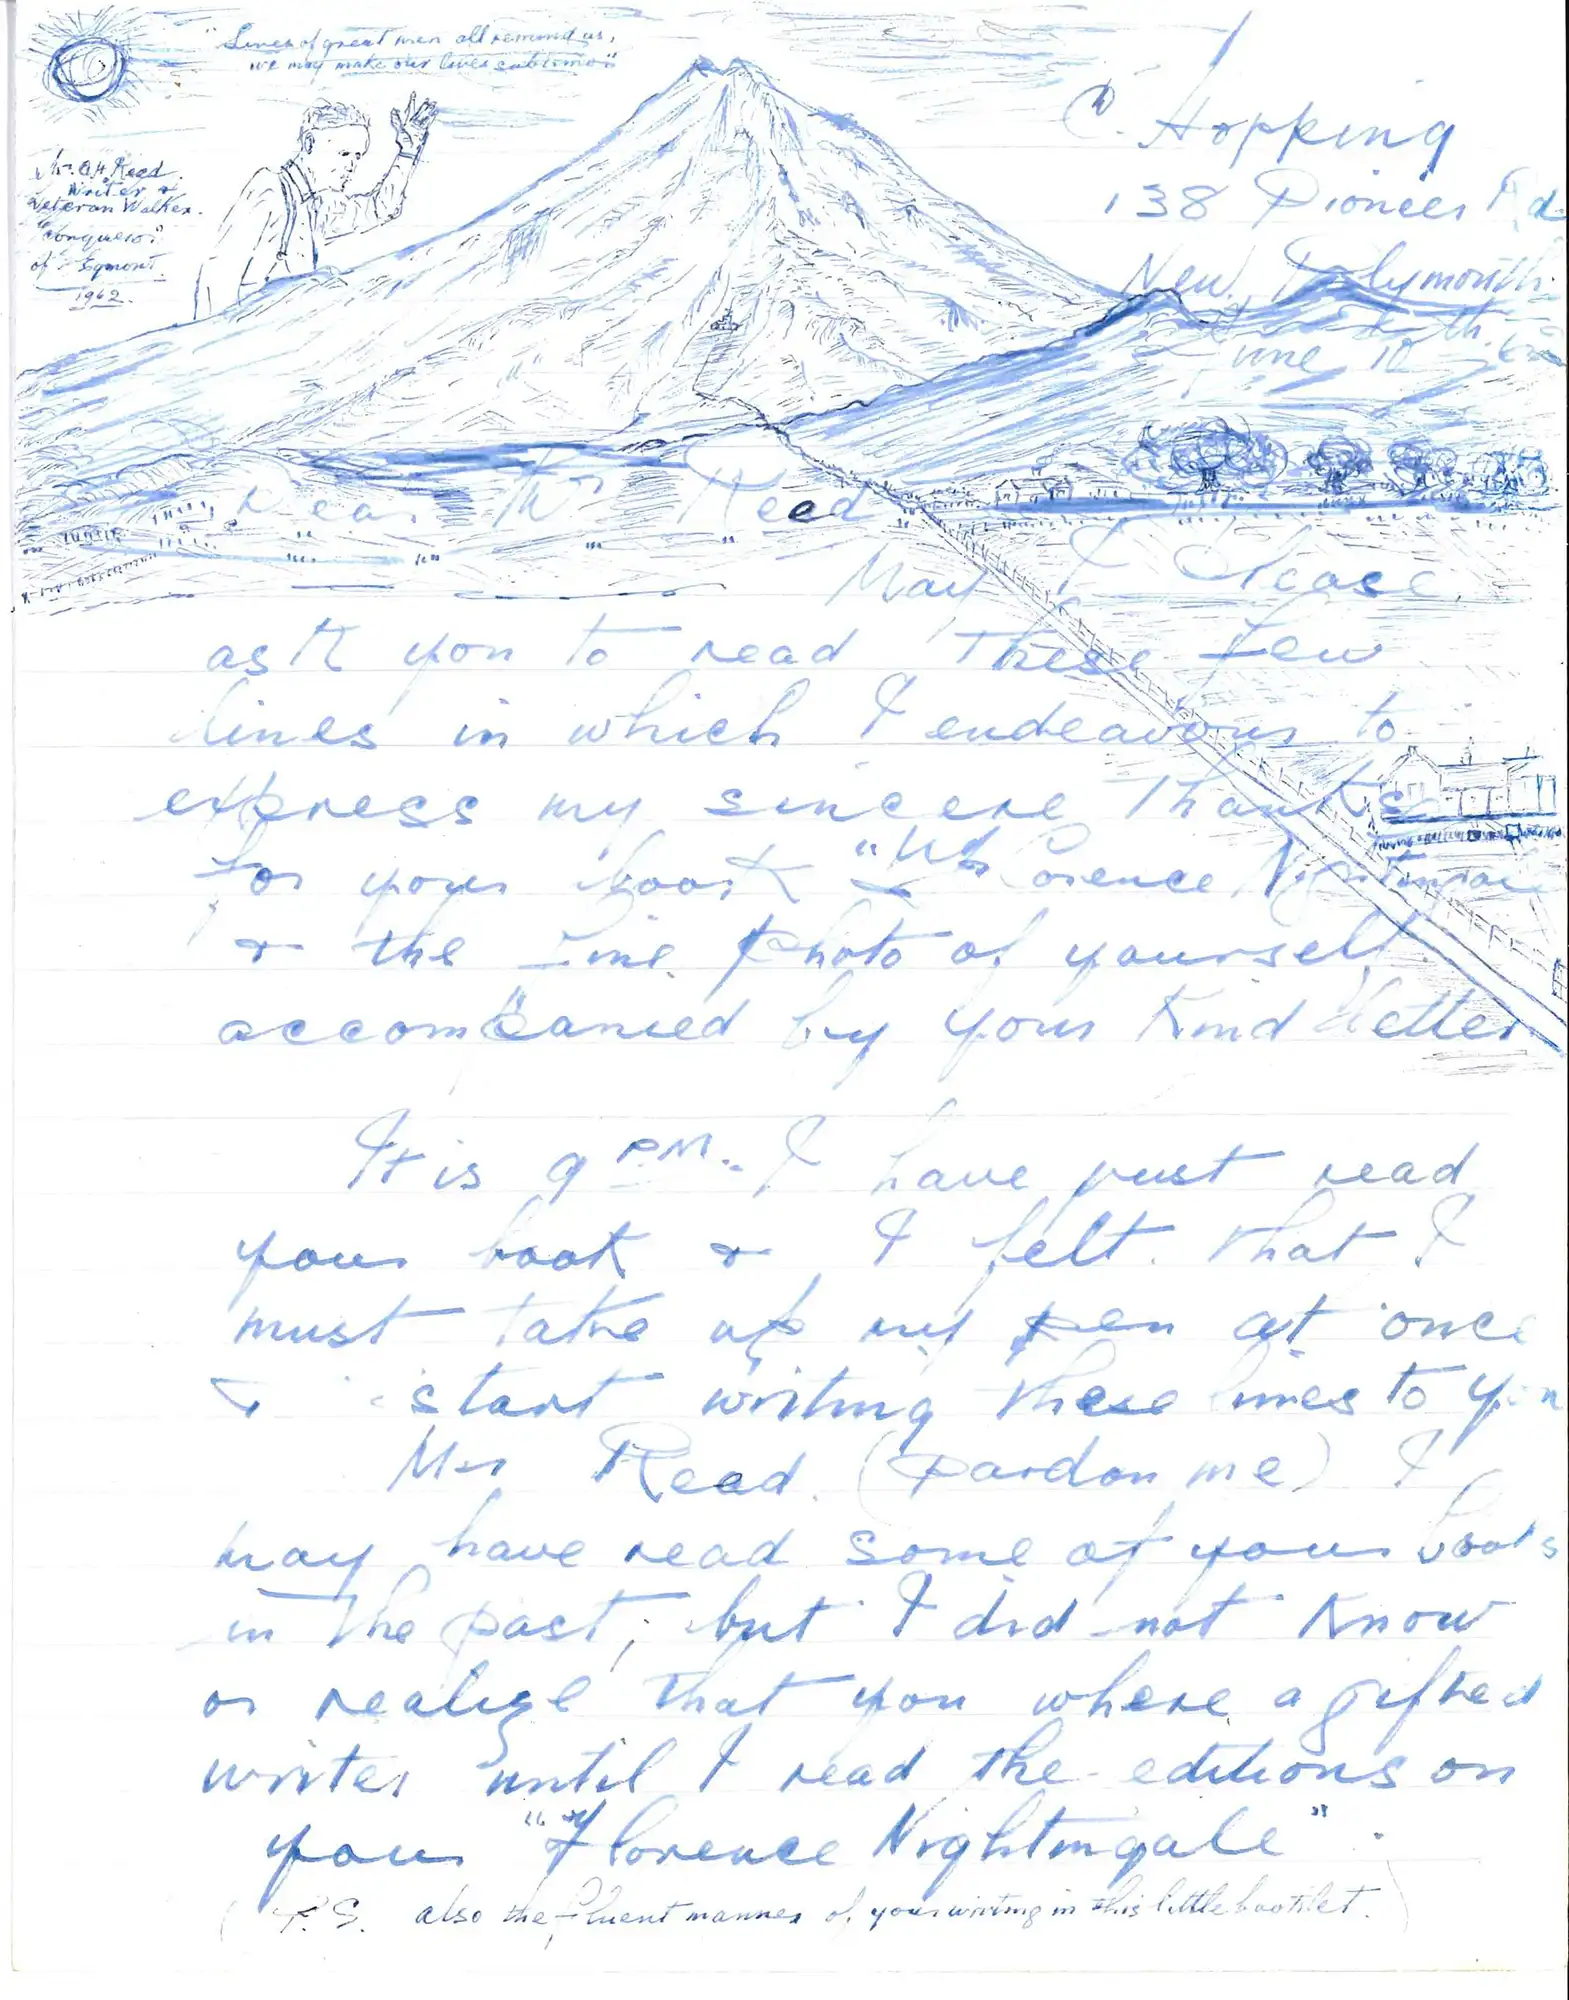 "Lives of great men all remind us,
we may make our lives sublime"
Mr. A H Reed.
Writer &
Veteran Walker.
"Conqueror"
of Egmont.
1962.
C. Hopping
138 Pioneer Rd
New Plymouth
June 10th
Dear Mr Reed
May I Please
ask you to read these few
lines in which I endeavour to
express my sincere thanks
for your book "Florence Nightingale
& the fine photo of yourself
accompanied by your kind letter
It is 9 PM. I have just read
your book & I felt that I
must take up my pen at once
& start writing these lines to you
Mr Reed. (Pardon me) I
may have read some of your books
in the past; but I did not know
or realize that you where a gifted
writer until I read the editions on
your "Florence Nightingale".
(P.S. also the fluent manner of your writing in this little booklet.)